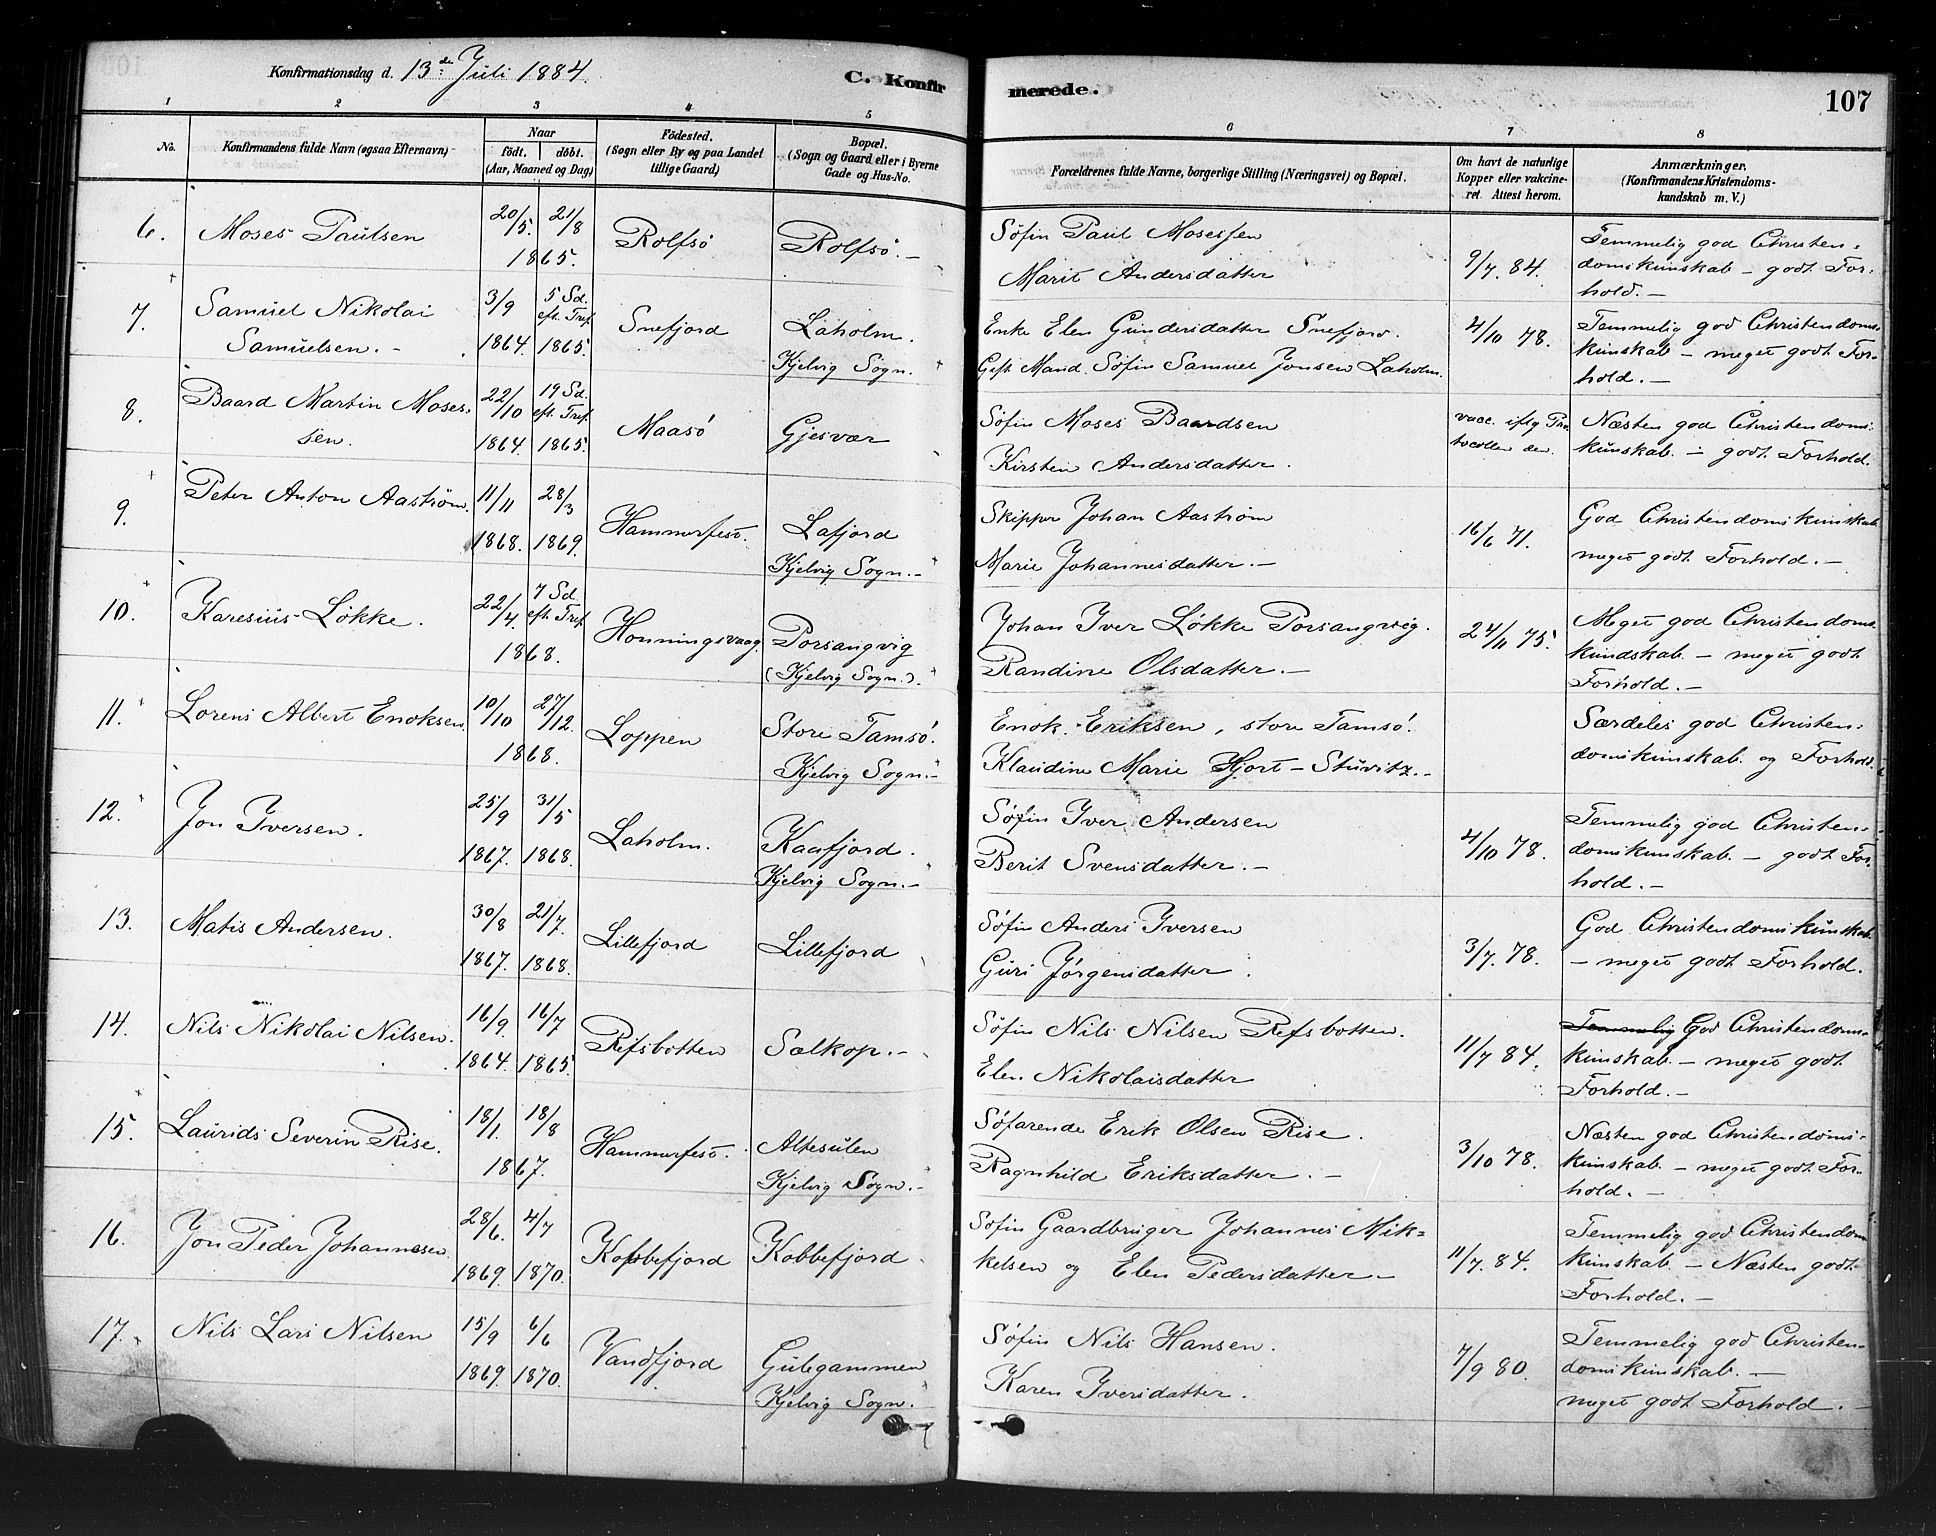 Konfirmationsdag d. 13de Juli 1884.
C. Konfirmerede.
107
1 2 3 4 5 6 7 8
No.
Konfirmandens fulde Navn (ogsaa Efternavn)
Naar
födt. döbt.
(Aar, Maaned og Dag)
Födested.
(Sogn eller By og paa Landet
tillige Gaard)
Bopæl.
(Sogn og Gaard eller i Byerne
Gade og Hus-No.
Forældrenes fulde Navne, borgerlige Stilling (Næringsvei) og Bopæl.
Om havt de naturlige
Kopper eller vakcine-
ret. Attest herom.
Anmærkninger.
(Konfirmandens Kristendoms-
kundskab m. V.)
6. Moses Paulsen
20/5. 21/8
1865.
Rolfsö
Rolfsö. -
Söfin Paul Mosessen
Marit Andersdatter
9/7. 84.
Temmelig god Christen-
domskunskab - godt For-
hold. -
7. Samuel Nikolai
Samuelsen. -
3/9 5 Sd.
eft. Tref.
1864. 1865.
Snefjord
Laholm.
Kjelvig Sogn.
Enke Elen Gundersdatter Snefjord.
Gift Mand Söfin Samuel Jonsen Laholm.
4/10 78.
Temmelig god Christendoms-
kunskab - meget godt For-
hold. -
8. Baard Martin Moses-
sen.
22/10 19 Sd.
eft. Tref.
1864. 1865.
Maasö
Gjesvær
Söfin Moses Baardsen
Kirsten Andersdatter.
vacc. iflg Pro-
tocollen den
Næsten god Christendoms-
kunskab - godt Forhold.
9. Peter Anton Aaström.
11/11 28/3
1868. 1869.
Hammerfest.
Lafjord
Kjelvig Sogn. -
Skipper Johan Aaström
Marie Johannesdatter. -
16/6 71.
God Christendomskunskab
meget godt Forhold. -
10. Karesius Lökke.
22/4. 7 Sd.
eft. Tref.
1868.
Honningsvaag
Porsangvig
(Kjelvig Sogn.)
Johan Iver Lökke Porsangvig.
Randine Olsdatter. -
24/11 75.
Meget god Christendoms-
kundskab. - meget godt
Forhold. -
11. Lorens Albert Enoksen.
10/10 27/12.
1868.
Loppen
Store Tamsö.
Kjelvig Sogn. -
Enok Eriksen, store Tamsö.
Klaudine Marie Hjort - Stuvitz. -
Særdeles god Christen-
domskunskab og Forhold.
12. Jon Iversen.
25/9 31/5
1867. 1868.
Laholm.
Kaafjord.
Kjelvig Sogn. -
Söfin Iver Andersen
Berit Svensdatter. -
4/10 78.
Temmelig god Christen-
domskunskab. - godt For-
hold. -
13. Matis Andersen.
30/8 21/7
1867. 1868.
Lillefjord
Lillefjord
Söfin Anders Iversen
Guri Jörgensdatter.
3/7. 78.
God Christendomskunskab
- meget godt Forhold.
14. Nils Nikolai Nilsen.
16/9 16/7
1864. 1865.
Refsbotten
Sælkop. -
Söfin Nils Nilsen Refsbotten.
Elen Nikolaisdatter
11/7 84.
Temmelig God Christendoms-
kunskab. - meget godt
Forhold. -
15. Laurids Severin Rise.
18/1. 18/8
1867.
Hammerfest.
Altesulen
Kjelvig Sogn. -
Söfarende Erik Olsen Rise.
Ragnhild Eriksdatter. -
3/10 78.
Næsten god Christendoms-
kunskab. - meget godt For-
hold. -
16. Jon Peder Johannesen.
28/6. 4/7
1869. 1870.
Kobbefjord
Kobbefjord.
Söfin Gaardbruger Johannes Mik-
kelsen og Elen Pedersdatter -
11/7. 84.
Temmelig god Christendoms
kunskab. - Næsten godt
Forhold. -
17. Nils Lars Nilsen
15/9 6/6
1869. 1870.
Vandfjord
Gulegammen
Kjelvig Sogn.
Söfin Nils Hansen.
Karen Iversdatter.
7/9 80.
Temmelig god Christen-
domskunskab. -
meget godt Forhold. -